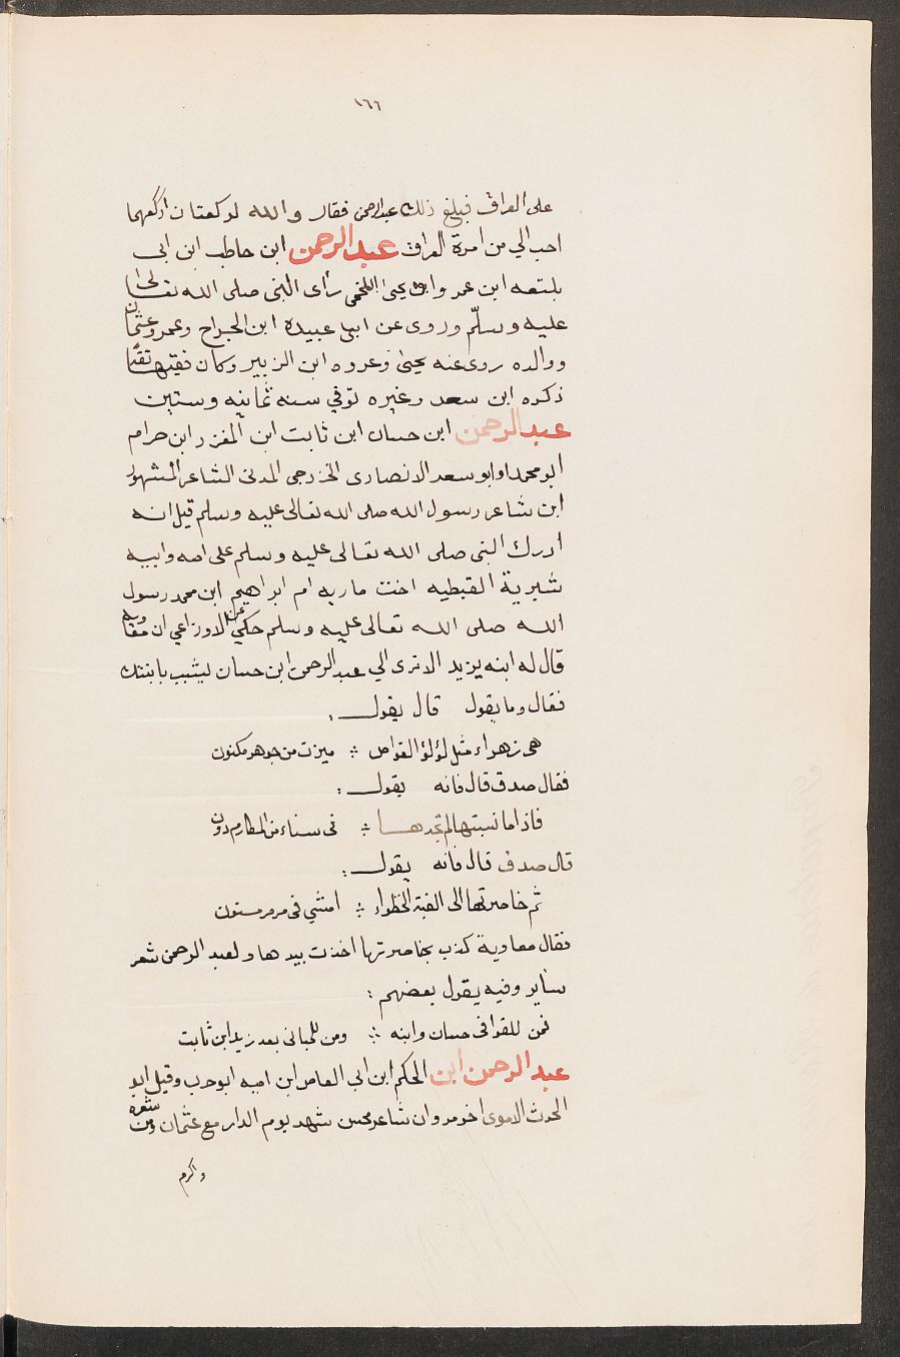 ١٦٦
على العراق فبلغ ذلك عبد الرحمن فقال والله لركعتان اركعهما
احب الي من امرة العراق عبد الرحمن ابن حاطب ابن ابى
بلتعه ابن عمر وابن يحيى اللخمي رأى النبى صلى الله تعالى
عليه وسلّم وروى عن ابى عبيدة ابن الجراح وعمر وعثمان
ووالده روى عنه يحيى وعروه ابن الزبير وكان فقيها ثقتا
ذكره ابن سعد وغيره توفي سنه ثمانيه وستين
عبد الرحمن ابن حسان ابن ثابت ابن المنذر ابن حرام
ابو محمد او ابو سعد الانصارى الخزرجى المدنى الشاعر المشهور
ابن شاعر رسول الله صلى الله تعالى عليه وسلم قيل انه
ادرك النبى صلى الله تعالى عليه وسلم على امه وابيه
شيرية القبطيه اخت ماريه ام ابراهيم ابن محمد رسول
الله صلى الله تعالى عليه وسلم حكي عن الاوزاعي ان معاويه
قال له ابنه يزيد الا ترى الي عبد الرحمن ابن حسان ليشبب بابنتك
فقال وما يقول قال يقول
هى زهراء مثل لؤلؤ الغواص ؞ ميزت من جوهر مكنون
فقال صدق قال فانه يقول :
فاذا ما نسبتها لم تجدها ؞ فى سناء من المكارم دون
قال صدق قال فانه يقول :
ثم خاصرتها الى القبة الخظراء ؞ امشي فى مرمر مسنون
فقال معاوية كذب بخاصرتها اخذت بيدها ولعبد الرحمن شعر
ساير وفيه يقول بعضهم :
فمن للقوافى حسان وابنه ؞ ومن للمبانى بعد زيد ابن ثابت
عبد الرحمن ابن الحكم ابن ابي العاص ابن اميه ابو حرب وقيل ابو
الحرث الاموى اخو مروان شاعر محسن شهد يوم الدار مع عثمان ومن شعره
واكرم